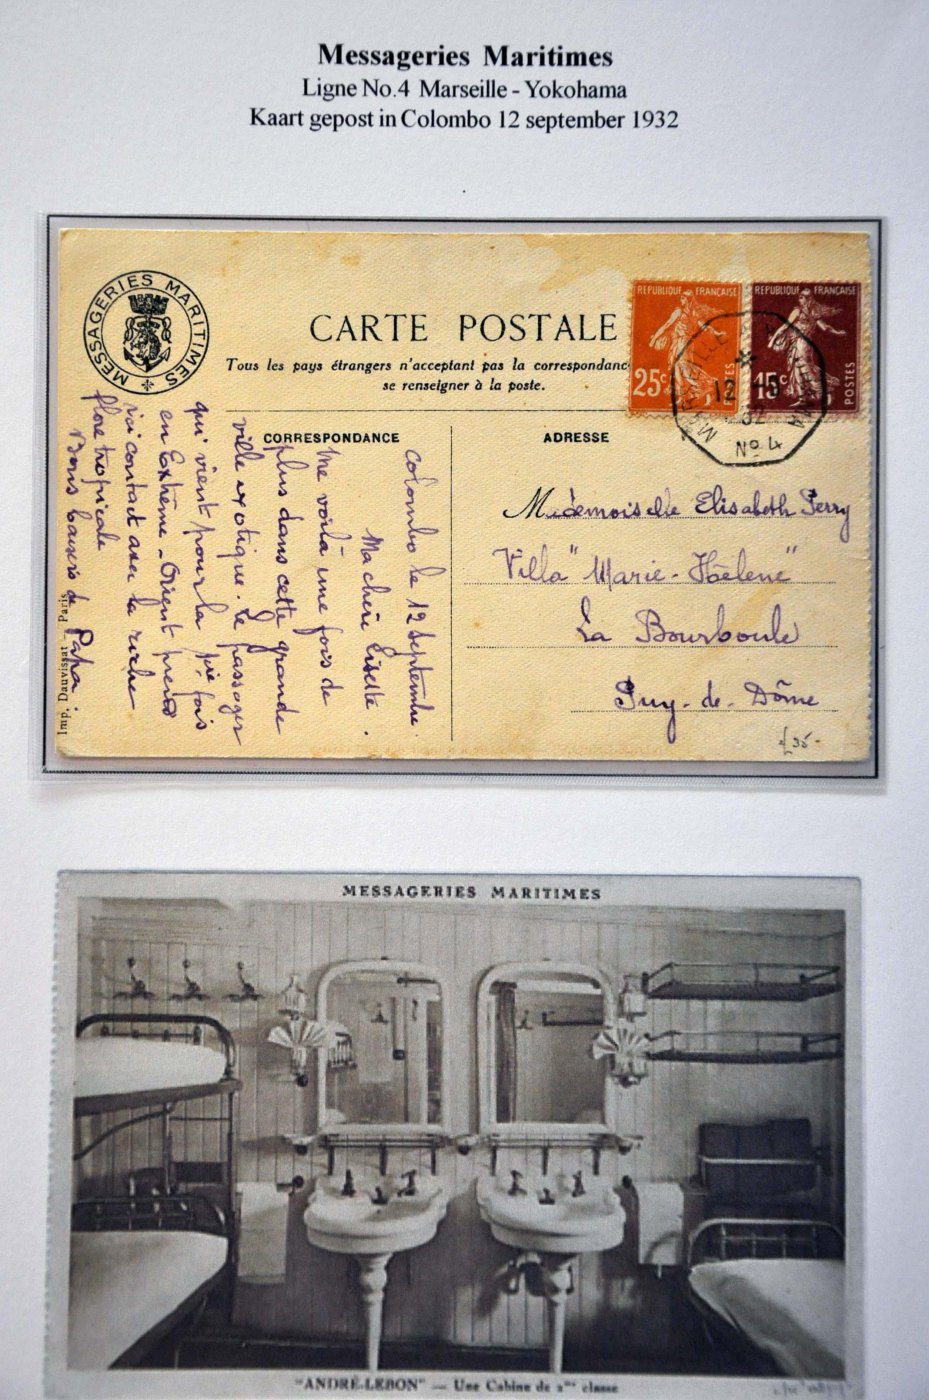 Messageries Maritimes
Ligne No.4 Marseille - Yokohama
Kaart gepost in Colombo 12 september 1932
MESSAGERIES MARITIMES
CARTE POSTALE
Tous les pays étrangers n'acceptant pas la correspondanc
se renseigner à la poste.
REPUBLIQUE FRANÇAISE
25c
REPUBLIQUE FRANÇAISE
15c
POSTES
MARSEILLE
12
32
No 4
CORRESPONDANCE
ADRESSE
Colombo le 12 Septembre
Ma chère Lisette.
Me voilà une fois de
plus dans cette grande
ville exotique. Le passager
qui vient pour la 1ère fois
en Extrême-Orient prend
ici contact avec la riche
flore tropicale
Bons baisers de Papa.
Mademoiselle Elisabeth Perry
Villa "Marie-Hélene"
La Bourboule
Puy-de-Dôme
Imp. Dauvissat - Paris.
£35-
MESSAGERIES MARITIMES
"ANDRÉ-LEBON" — Une Cabine de 2me classe